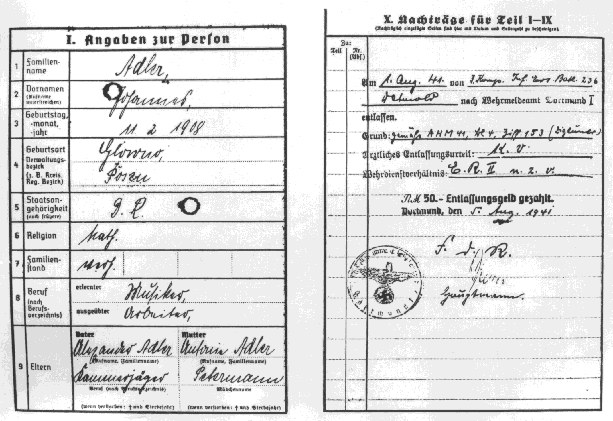 I. Angaben zur Person
1 Familien-
name
Adler,
2 Vornamen
(Rufname
unterstreichen)
Johannes,
3 Geburtstag,
-monat,
-jahr
11. 2 1908
4 Geburtsort
Verwaltungs-
bezirk
(z. B. Kreis,
Reg. Bezirk)
Glowno,
Posen
5 Staatsan-
gehörigkeit
(auch frühere)
D. R.
6 Religion
kath.
7 Familien-
stand
verh.
8 Beruf
(nach
Berufs-
verzeichnis)
erlernter
Musiker,
ausgeübter
Arbeiter,
9 Eltern
Vater
Alexander Adler
(Rufname, Familienname)
Kammerjäger
Beruf (nach Berufsverzeichnis)
(wenn verstorben: † und Sterbejahr)
Mutter
Antonie Adler
(Rufname, Familienname)
Petermann
Mädchenname
(wenn verstorben: † und Sterbejahr)
X. Nachträge für Teil I–IX
Zu:
Teil
Nr.
Am 1. Aug. 41. von 3. Komp. Inf. Ers. Batl. 236
Detmold nach Wehrmeldeamt Dortmund I
entlassen.
Grund: gemäß AHM 41, Ziff 153
Ärztliches Entlassungsurteil: K. V.
Wehrdienstverhältnis: E. R. II n. z. v.
RM 50.- Entlassungsgeld gezahlt.
Dortmund, den 5. Aug. 1941
F. d. R.
Hauptmann.